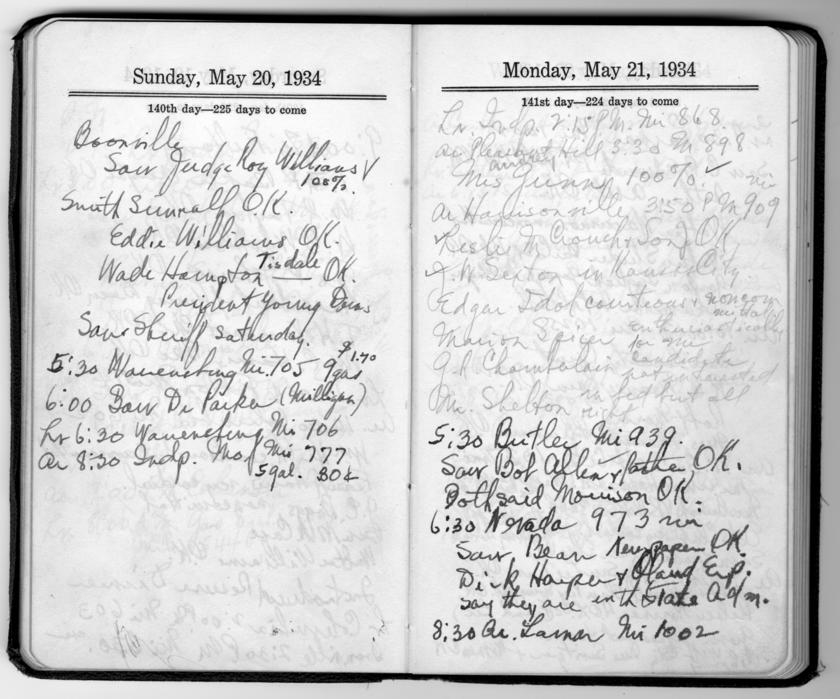 Sunday, May 20, 1934
140th day—225 days to come
Boonville
Saw Judge Roy Williams √
100%.
Smith Sunrall O.K.
Eddie Williams OK.
Tisdale
Wade Hampton —— OK.
President Young Dems
Saw Sheriff Saturday.
$1.70
5:30 Warrensburg Mi. 705 9 gas
6:00 Saw Dr Parker (Milligan)
Lv 6:30 Warrensburg Mi 706
Ar 8:30 Indp. Mo, Mi 777
5 gal. 80¢
Monday, May 21, 1934
141st day—224 days to come
Lv. Indp. 2:15 P.M. Mi 868
ar Pleasant Hill 3:30 M 898
Mrs Gunn 100% √
Mi
Ar Harrisonville 3:50 PM 909
√ Leslie M Crouch & Son OK
J.W. Sexton in Kansas City
Edgar Idol courteous & noncommittal
Marion Spicer enthusiastically
for me
G.R. Chamberlain candidate
not interested
Mr. Shelton in fed but all
right
5:30 Butler Mi 939.
Saw Bob Allen & father, OK.
Both said Morrison OK.
6:30 Nevada 973 mi
Saw Bean Newspaper OK.
Dick Harper & Claud Exp.
say they are with State Adm.
8:30 Ar. Lamar Mi 1002